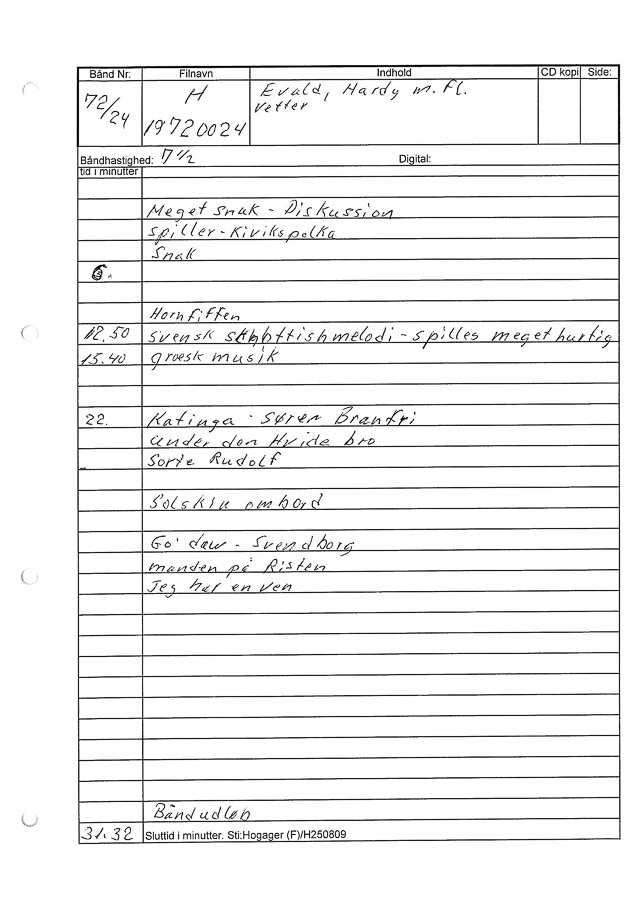 Bånd Nr: Filnavn Indhold CD kopi Side:
72/24 H Evald, Hardy m. fl.
19720024 vetter
Båndhastighed: 7 1/2 Digital:
tid i minutter
Meget snak - Diskussion
spiller - Kivikspolka
Snak
6.
Hornfiffen
12.50 svensk schottishmelodi - spilles meget hurtig
15.40 græsk musik
22. Katinga - Søren Brankri
under den Hvide bro
Sorte Rudolf
Solskin ombord
Go' daw - Svendborg
manden på Risten
Jeg har en ven
Båndudløb
31.32 Sluttid i minutter. Sti:Hogager (F)/H250809